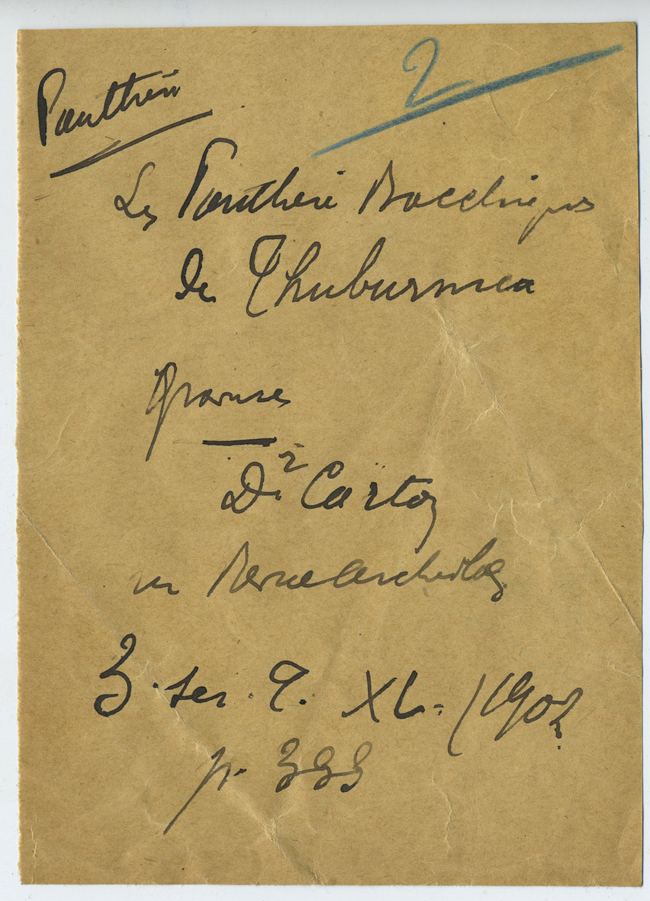 2
Panthère
Les Panthère Bacchiques
de Thuburnica
Dr Carton
in Revue archéolog
3. ser. T. XL. (1902
p. 333